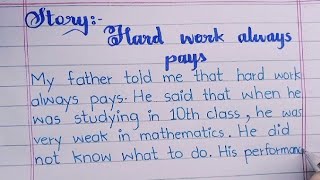 Story:-
Hard work always
pays
My father told me that hard work
always pays. He said that when he
was studying in 10th class, he was
very weak in mathematics. He did
not know what to do. His performanc